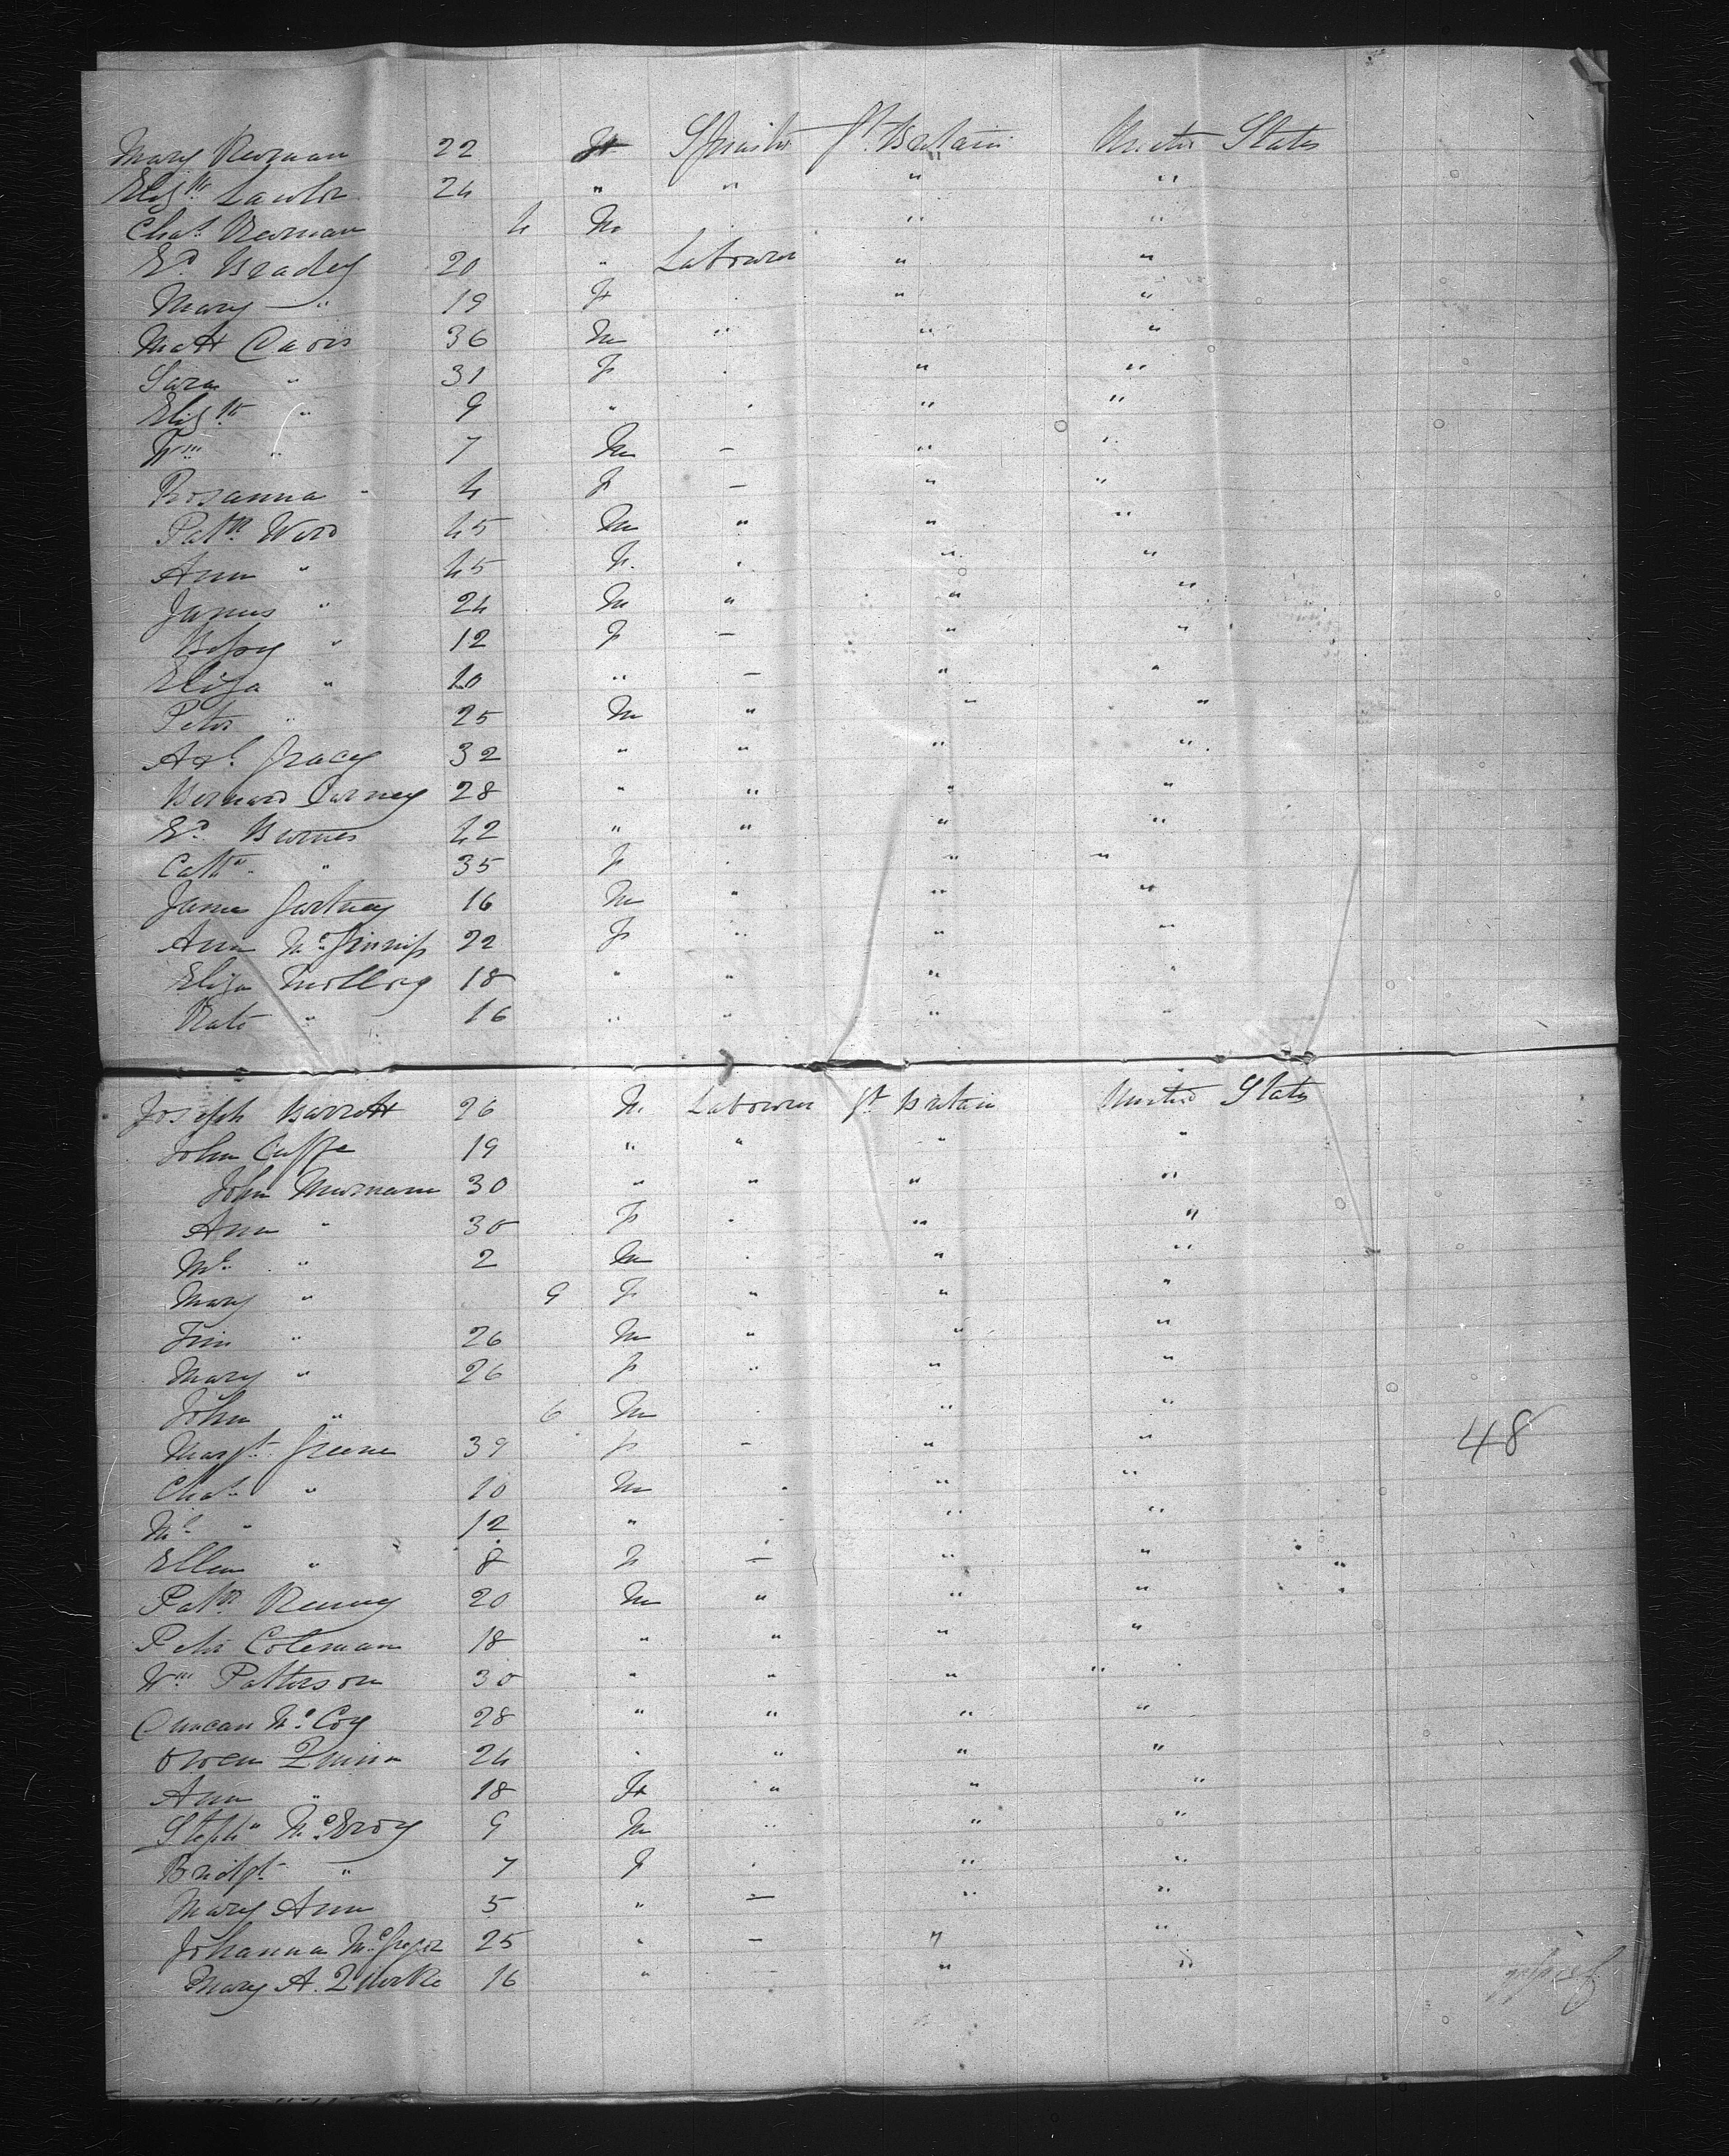 Mary Keenan 22 F Spinster Gt. Britain United States
Elizth Lawlor 24 " " " "
Chas. Keenan 4 M " "
Ed. Bradey 20 " Labourer " "
Mary " 19 F . " "
Matt Davis 36 M " " "
Sara " 31 F . " "
Elizth " 9 " . " "
Wm " 7 M – " "
Rosanna " 4 F – " "
Patk. Ward 45 M " " "
Ann " 45 F. . " "
James " 24 M " " "
Betsy " 12 F – " "
Eliza " 10 " – " "
Peter " 25 M " " "
Gracy 32 " " " "
Bernard Carney 28 " " " "
Ed. Burnes 42 " " " "
Cathe. " 35 F . " "
James Gartney 16 M " " "
Ann McGinnis 22 F " " "
Eliza Mollog 18 " " " "
Kate " 16 " " " "
Joseph Barrett 26 M. Labourer Gt Britain United States
John Cuffe 19 " " " "
John Murnane 30 " " " "
Ann " 30 F . " "
Ml. " 2 M . " "
Mary " 9 F " " "
Tim " 26 M " " "
Mary " 26 F " " "
John " 6 M . " "
Margt. Greene 39 F – " " 48
Chas. " 10 M . " "
Ml. " 12 " . " "
Ellen " 8 F – " "
Patk. Kenny 20 M " " "
Peter Coleman 18 " " " "
Wm Patterson 30 " " " "
Duncan McCoy 28 " " " "
Owen Quinn 24 " " " "
Ann " 18 F " " "
Stephn McEvoy 9 M " " "
Bridgt. " 7 F . " "
Mary Ann 5 " – " "
Johanna McGregor 25 " – " "
Mary A. Quirke 16 " – " "